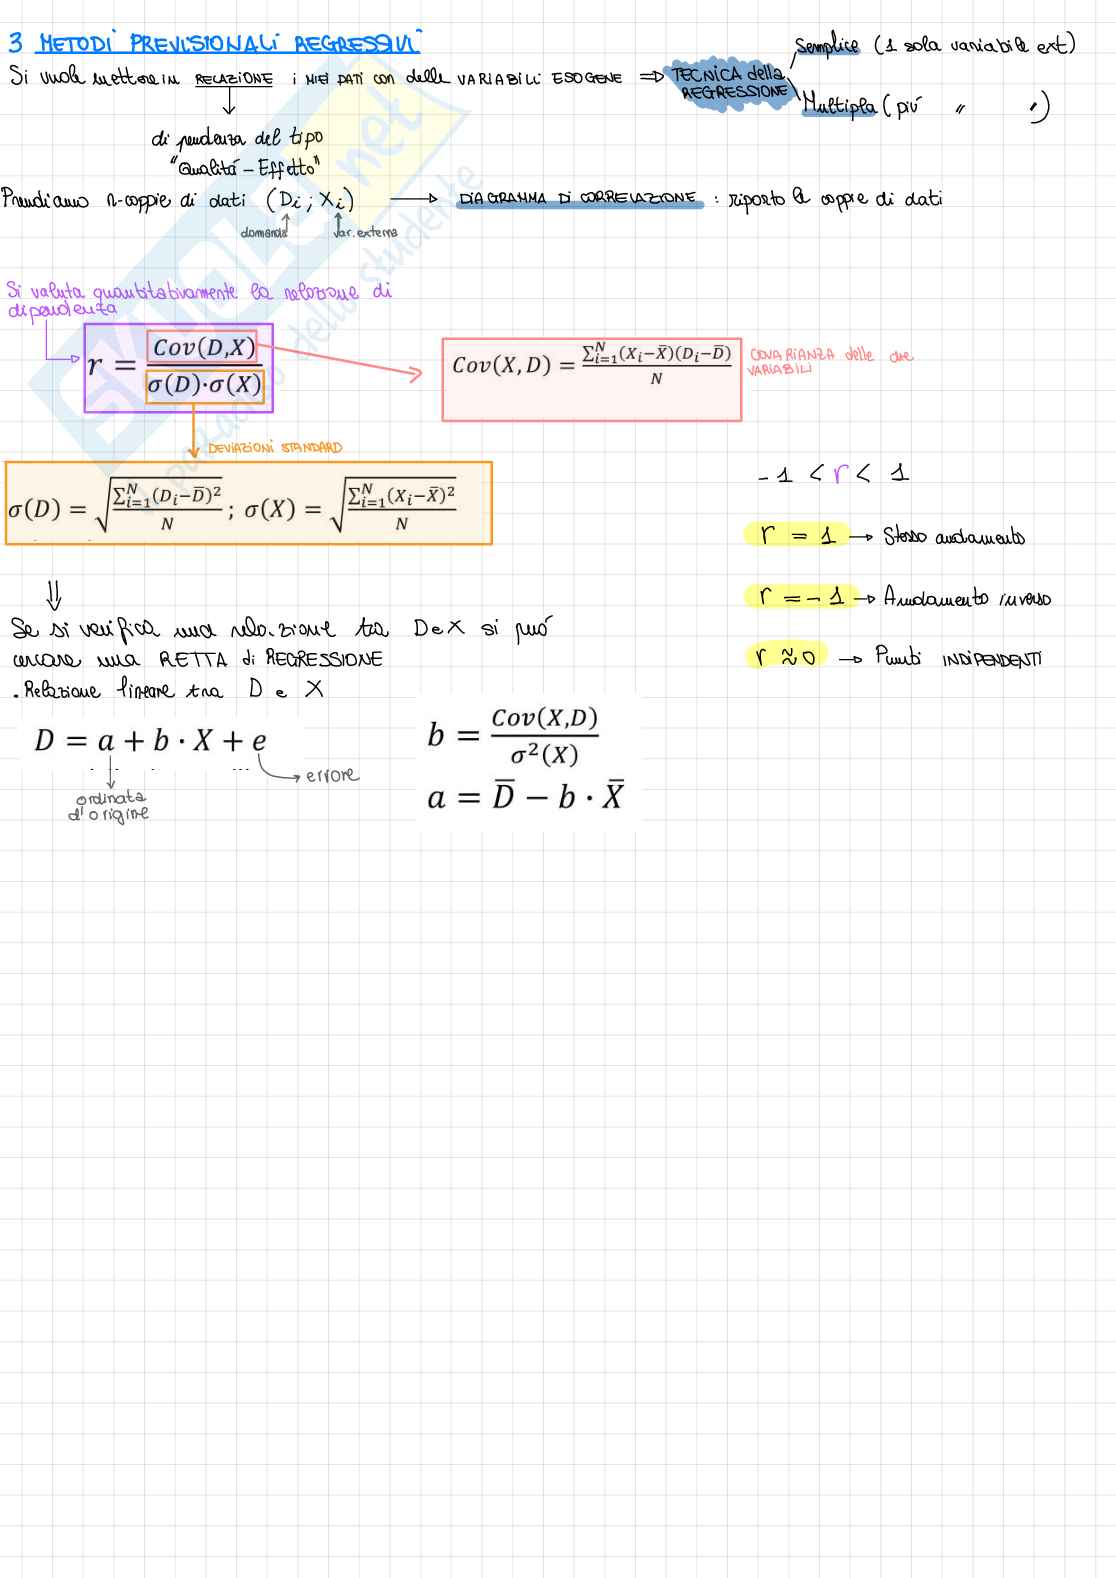 3 METODI PREVISIONALI REGRESSIVI
Si vuole mettere in RELAZIONE i MIEI DATI con delle VARIABILI ESOGENE ⇒ TECNICA della REGRESSIONE
Semplice (1 sola variabile ext)
Multipla (piú " ")
di pendenza del tipo
"Qualitá - Effetto"
Prendiamo n-coppie di dati (Di ; Xi) → DIAGRAMMA DI CORRELAZIONE : riporto le coppie di dati
domanda var. externa
Si valuta quantitativamente la relazione di
dipendenza
r = Cov(D,X) / σ(D)·σ(X)
Cov(X,D) = ∑ᵢ₌₁ᴺ(Xᵢ−X̅)(Dᵢ−D̅) / N
COVARIANZA delle due
VARIABILI
DEVIAZIONI STANDARD
σ(D) = √(∑ᵢ₌₁ᴺ(Dᵢ−D̅)² / N) ; σ(X) = √(∑ᵢ₌₁ᴺ(Xᵢ−X̅)² / N)
-1 < r < 1
r = 1 → Stesso andamento
r = -1 → Andamento inverso
r ≈ 0 → Punti INDIPENDENTI
⇓
Se si verifica una relazione tra D e X si puó
cercare una RETTA di REGRESSIONE
. Relazione lineare tra D e X
D = a + b · X + e
→ errore
ordinata
d'origine
b = Cov(X,D) / σ²(X)
a = D̅ − b · X̅
SKUOLA.net
il paradiso dello studente